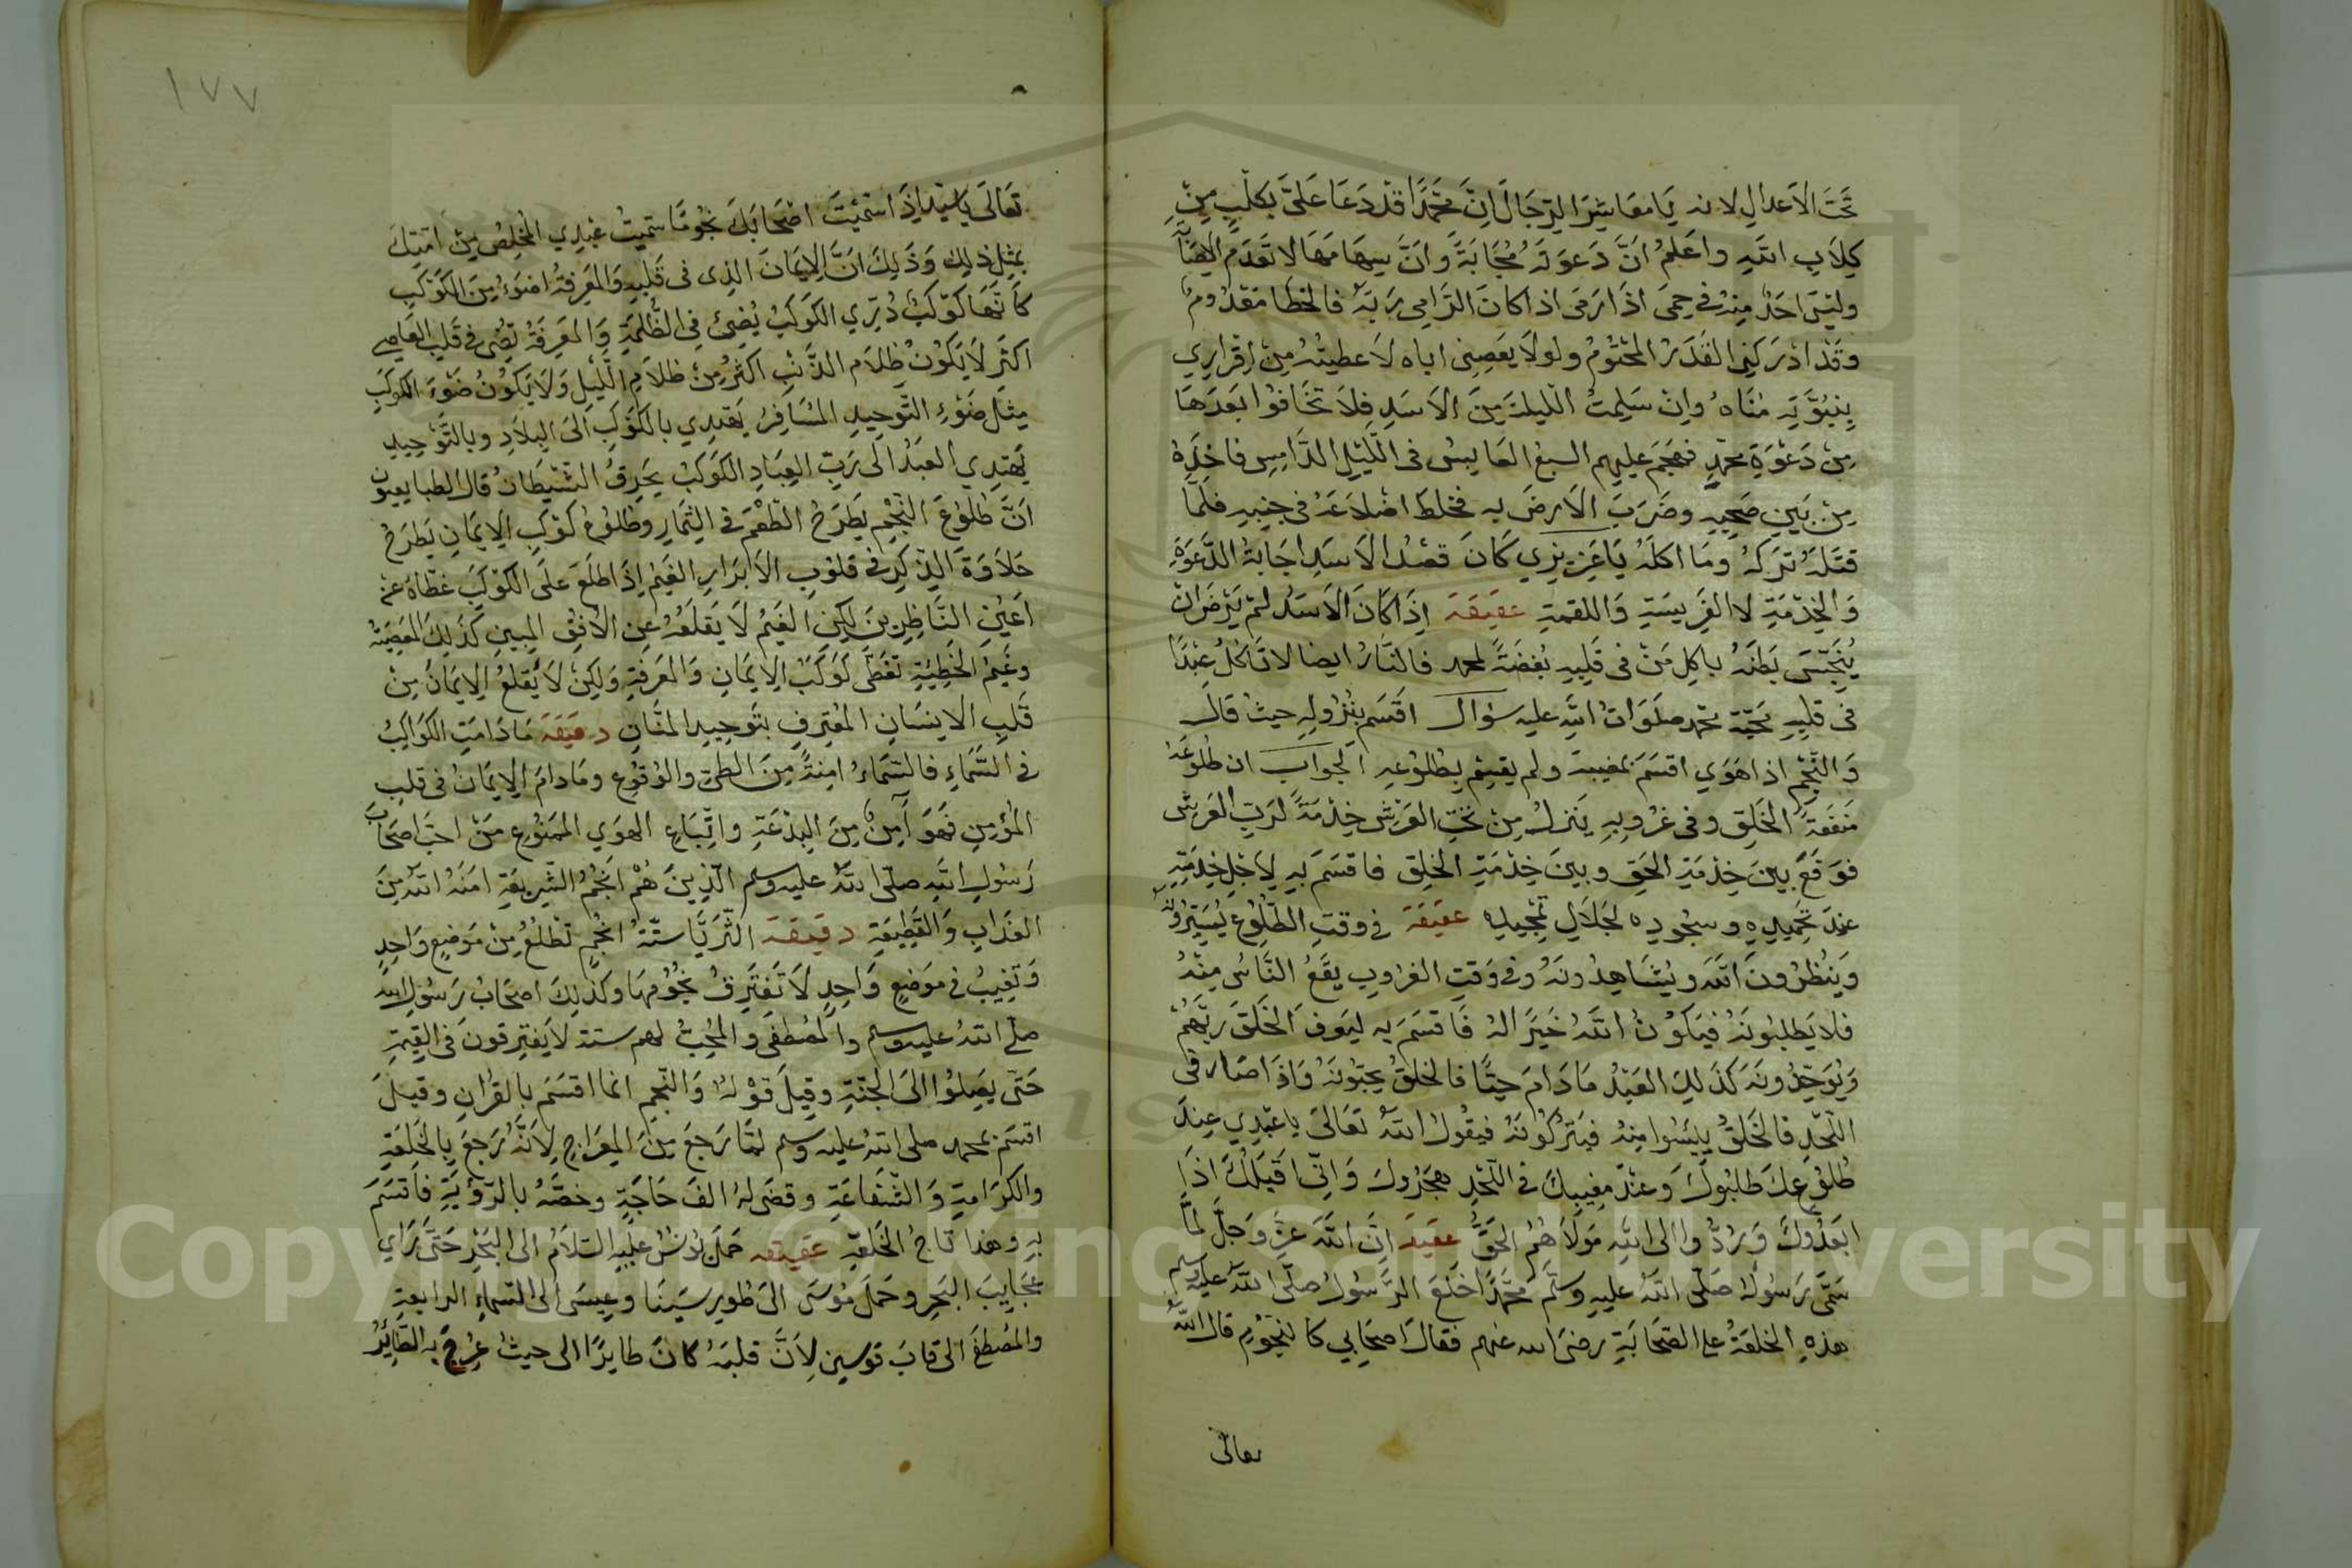 تَحْتَ الاَعدالِ لانه يَا معَاشِرَ الرِجَال اِنَّ مُحَمَّدًا قَدْ دَعَا عَلَىَّ بكلْبٍ مِنْ
كِلَابِ اللهِ واعلمُ انَّ دَعوتَه مُجَابَةً وانَّ سِهَامَهَا لا تَعدَم الاِصَابَةَ
وليسَ احدٌ مِنهُ فى حِمىَ اذَا رَمىَ اذا كانَ الرَّامِى رَبَهُ فالخطا مَعْدُومٌ
وقَدْ ادْرَكنِى القَدَرُ المحْتُومُ ولولا يَعصِنى اباه لاَعطيتُهُ مِنْ اِقرَارِي
بِنبُوَّتِهِ مُنَاهُ وانْ سَلِمتُ اللّيلةَ مِنَ الاَسَدِ فِلاَ تَخَافُوا بَعدَهَا
مِنْ دَعْوَةِ محمّدٍ فهجَمَ عليهِم السبعُ العَابِسُ فى اللّيْلِ الدَّامِسِ فاخذَهُ
مِنْ بَيْنِ صَحبِهِ وضَرَبَ الاَرضَ به فخلطَ اضْلاَعَهُ فى جنبِهِ فلمَّا
قتَلهُ تركهُ ومَا اكلَهُ يَا عَزِيزِي كَانَ قصْدُ الاَسَدِ اجَابةُ الدَّعوَةِ
وَالخِدْمَةِ لا الفَرِيسَةِ وَاللقمةِ عقيقَة اِذَا كَانَ الاَسَدُ لَمْ يَرْضَ ان
يُنَجِّسَ بَطنَهُ باكِلِ مَنْ فى قَلبِهِ بُغضَةً لمحمد فالنَّارُ ايضا لا تَاكُلُ عَبْدًا
فى قلبِهِ محَبّة محمد صلَوَاتُ اللهِ عليه سُوال اقسَم بنُزُولِهِ حيثُ قَالَ
وَالنَّجْم اذا هَوَي اقسَمَ بمغيبهِ ولم يقسِم بِطلُوعِهِ الجوابُ ان طلُوعَهُ
مَنفَعَةً الخَلِق وفى غرُوبِهِ يَنزلُ مِنْ تحتِ العَرْشِ خِدْمَةً لَربِّ العَرشِ
فوقَعَ بينَ خِدْمَةِ الحَقِ وبينَ خِدْمَةِ الخلِق فاقسَمَ بِهِ لِاَجْلِ خِدْمَتِهِ
عندَ تحمِيدِهِ وسجُودِه لجَلالِ تمْجِيدِه عقيقَة فى وقتِ الطّلُوعِ يُشِيرُونَ
وَينظرُونَ الَيهِ ويُشَاهِدُونَهُ وفى وَقتِ الغرُوبِ يقَعُ النَّاسُ مِنْهُ
فلا يَطلبُونَهُ فيَكُونُ اللهُ خَيَرًا لهُ فَاقسَمَ بِهِ لِيَعرِفَ الخَلقَ رَبَّهُمْ
وَيُوَحِّدُونَهُ كذَلِكَ العَبْدُ مَادَامَ حيًّا فالخلقُ يُحِبّونَهُ وَاذَا صَار فى
اللّحْدِ فالخَلقُ يايَسُوا مِنهُ فيَتركُونَهُ فيقُولُ اللهُ تعَالى يا عَبْدِي عِندَ
طُلوُعِكَ طَلبُوكَ وَعنْدَ مغِيبِكَ فى اللّحْدِ هجَرُوكَ وَاِنِّى اقبَلُكَ اذَا
ابَعدُوكَ وَرُدُّوا الى اللهِ مَولاَهُمُ الحَقُّ عقيقَه اِنَّ اللهَ عزَّ وَجَلَّ لمَّا
سَمَّى رَسُولهُ صَلّى اللهُ عليهِ وسلَّم مُحَمَّدًا خلعَ الرَّسُولُ صلّى اللهُ عليه وسلم
هذِهِ الخلعَةُ على الصّحَابَةِ رضىَ الله عنهم فقالَ اصحَابِي كالنجُومِ قال الله
تعالى
١٧٧
تعَالىَ يا سَيّد اِذَا سَمّيْتَ اصْحَابَكَ نجُومًا سَميْتُ عَبْدِي المُخلِصُ مِنْ امّتِكَ
بمثِلِ ذلِكَ وَذَلِكَ اَنَّ الاِيمَانَ الذِى فى قَلبِهِ وَالمَعرِفةُ اضوَءُ مِنَ الكَوْكبِ
كاَنّهَا كَوْكَبٌ دُرّي الكوكَبُ يُضِئُ فى الظّلمَةِ وَالمَعرِفَةُ تضِئ فى قَلبِ العَاصِى
اكثَرَ لاَ يَكُونُ ظلاَمِ الذّنْبِ اكثرُ مِنْ ظلاَمِ اللّيلِ وَلاَ يَكُونُ ضَوْءَ الكوكبِ
مِثلَ ضَوْءِ التَّوحِيدِ المُسَافِرُ يَهتدِي بالكَوكبِ الىَ البِلاَدِ وبالتَّوْحِيدِ
يَهتدِي العبَدُ الى رَبِّ العِبَادِ الكوكَبُ يحَرِقُ الشّيْطَانَ قال الطبايعيون
اَنَّ طلُوعَ النّجْمِ يَطرَحُ الطّعْمَ فى الثِّمَارِ وطلُوعُ كوْكبِ الاِيمَانِ يَطرَحُ
حَلاَوَةَ الذّكِرِ فى قلوُبِ الاَبْرَارِ الغَيمُ اِذَا طلعَ علَى الكوْكبِ غطّاهُ عنْ
اَعْيُنِ النَّاظِرِينَ لكِنِ الغَيْمُ لاَ يَقلعَهُ عنِ الاُفقِ المبِينِ كذلِكَ المَعِصَيةُ
وغيْمِ الخَطِيْئَةِ تغَطّى كَوكَبَ الاِيمَانِ وَالمَعرفةِ وَلكِنْ لاَ يُقلعُ الاِيمَانُ مِنْ
قَلبِ الاِنسَانِ المُعْتِرفِ بتَوحِيدِ المنّانِ دقيقَة مَا دَامَتِ الكَوَاكِبُ
فى السَّمَاءِ فالسّمَاءُ امِنةً مِنَ الطىّ والوُقوُعِ ومَادامَ الاِيمَانُ فى قلبِ
المُؤمِنِ فهوَ آمِنٌ مِنَ البِدْعَةِ واتِّبَاعِ الهوَي الممنُوعِ مَنْ احَبّ اصحَابَ
رَسُولِ اللهِ صلّى اللهُ عليه وسلم الّذِينَ هُمْ انجُمُ الشّرِيعَةِ امَنهُ اللهُ مِنَ
العذَابِ وَالقَطِيعَةِ دقيقَة الثّرَيَّا ستّةُ انجُمٍ تطْلعُ مِنْ مَوضِعٍ وَاحِدٍ
وَتغِيبُ فى موَضِعٍ وَاحِدٍ لاَ تَفتَرِقُ نجُوُمهَا وكذَلِكَ اصحَابُ رَسُولِ الله
صلى اللهُ عليه وسلم والمُصْطفَى والمُحِبُّ لهم ستة لا يَفترِقونَ فى القِيمَةِ
حَتّى يصِلُوا الىَ الجنّةِ وقِيلَ قوْلهُ وَالنّجمِ انما اقسَمَ بِالقرُانِ وقيلَ
اقسَمَ بمحمد صلى اللهُ عليه وسلم لمَّا رَجعَ مِنَ المِعرَاجِ لِاَنَّهُ رَجعَ بِالخَلِعَةِ
والكرَامةِ وَالشّفاعَةِ وقضَى لهُ الفَ حَاجَةٍ وخصَّهُ بالرّؤيَةِ فاقسَمَ
بهِ وهذا تاجُ الخَلعَةِ عقيقه حَملَ يوُنسُ عليهِ السّلاَمُ الى البَحْرِ حَتّى رَاي
عجَايِبَ البَحِرِ وحَملَ مُوسَى الىَ طوُرِ سَيْنَا وعِيسَى الى السّماءِ الرابعةِ
والمصُطفَى الى قابَ قوسينِ لِاَنَّ قلبَهُ كانَ طايرًا الى حيثُ عُرِجَ به الطّايِرُ
Copyright © King Saud University